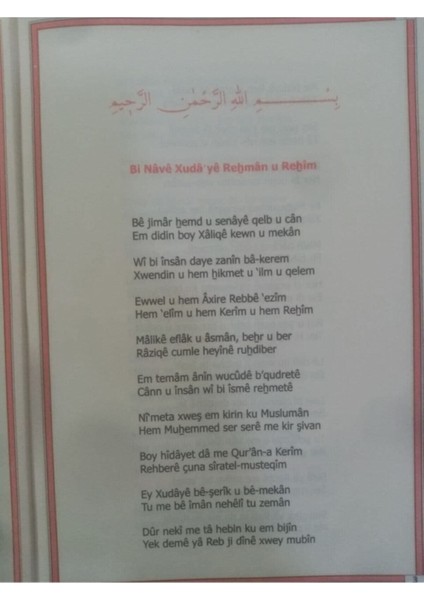 بِسْمِ اللهِ الرَّحْمٰنِ الرَّحِيمِ
Bi Nâvê Xudâ'yê Reḫmân u Reḫîm
Bê jimâr ḫemd u senâyê qelb u cân
Em didin boy Xâliqê kewn u mekân
Wî bi însân daye zanîn bâ-kerem
Xwendin u hem ḫikmet u 'ilm u qelem
Ewwel u hem Âxire Rebbê 'ezîm
Hem 'elîm u hem Kerîm u hem Reḫîm
Mâlikê eflâk u âsmân, beḫr u ber
Râziqê cumle heyînê ruḫdiber
Em temâm ânîn wucûdê b'qudretê
Cânn u însân wî bi îsmê reḫmetê
Nî'meta xweş em kirin ku Muslumân
Hem Muḫemmed ser serê me kir şivan
Boy hîdâyet dâ me Qur'ân-a Kerîm
Rehberê çuna sîratel-musteqîm
Ey Xudâyê bê-şerîk u bê-mekân
Tu me bê îmân nehêlî tu zemân
Dûr nekî me tâ hebin ku em bijîn
Yek demê yâ Reb ji dînê xwey mubîn